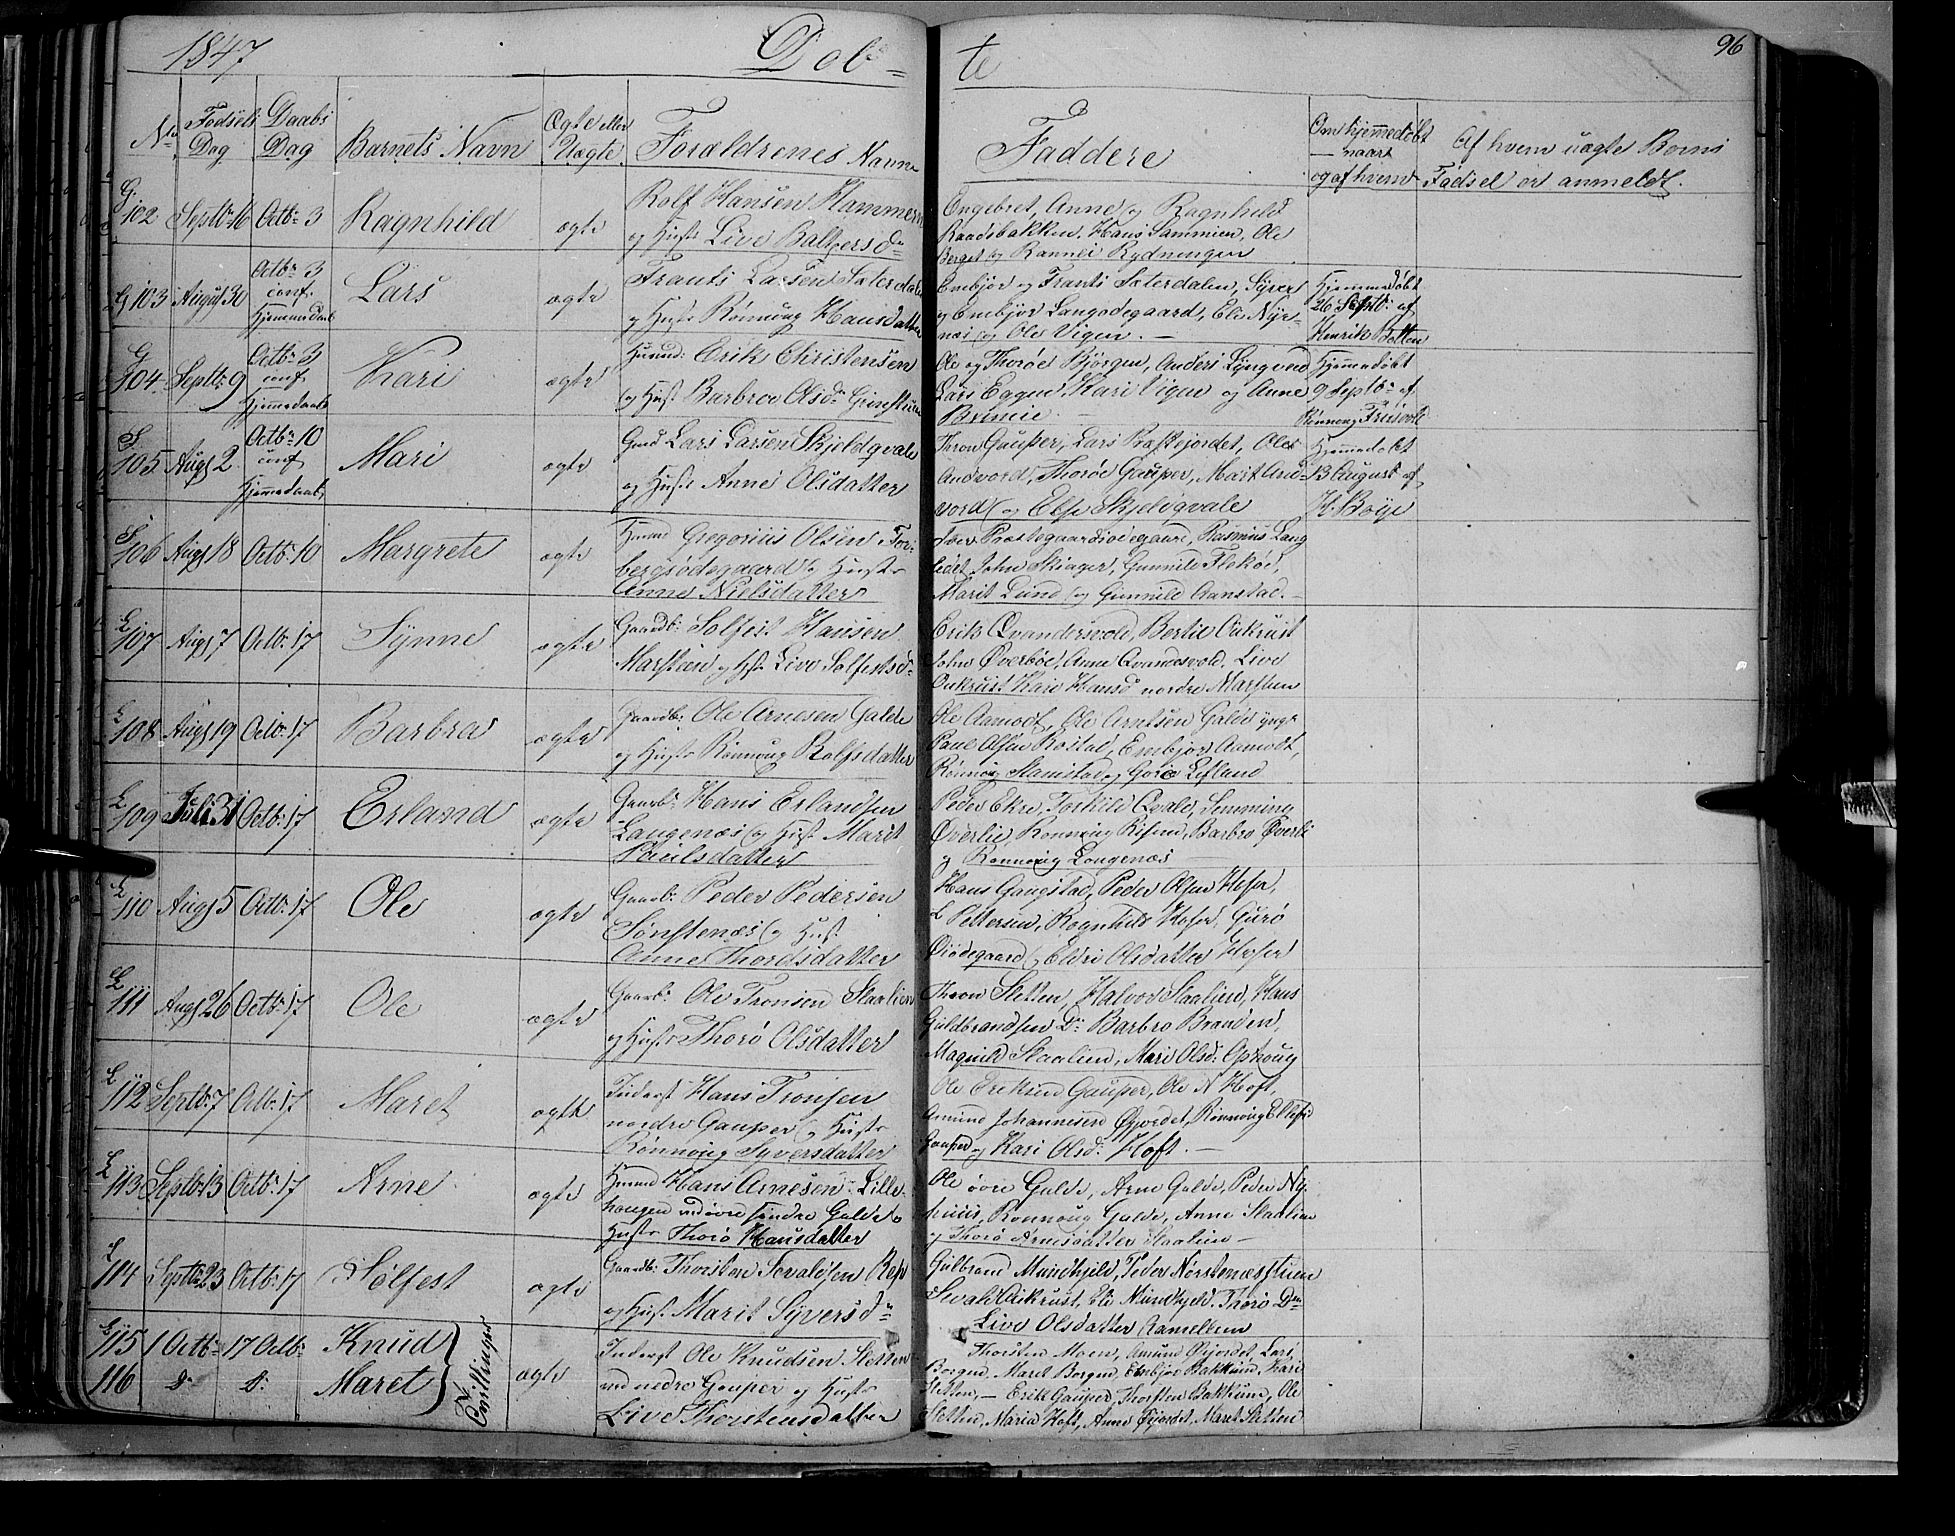 1847 Døb= te 96
No Fødsels Dag Daabs Dag Barnets Navn Ægte eller Uægte Forældrenes Navne Faddere Om hjemmedøbt — naar og af hvem Af hvem uægte Børns Fødsel er anmeldt.
G. 102 Septbr 16 Octbr 3 Ragnhild ægte Rolf Hansen Hammer
og Hustr Live Baltzersdr
Engebret, Anne og Ragnhild
Raadsbakken, Hans Sammien, Ole
Berget og Rannei Rydningen
G 103 August 30 Octbr 3 conf. Hjemmedaab Lars ægte Frants Larsen Sæterdalen
og Hustr Rønnoug Hansdatter
Embjør og Frants Sæterdalen, Syver
og Embjør Langødegaard, Eli Nyr-
næs og Ole Vigen. —
Hjemmedøbt
26 Septbr af
Henrik Botten
G 104 Septbr 9 Octbr 3 conf. Hjemmedaab Kari ægte Husmd: Erik Christensen
og Hust Barbroe Olsdr Grinstuen
Ole og Thorøe Bjørgen, Anders Lyngved
Lars Eggen, Kari Vigen og Anne
Brimie. —
Hjemmedøbt
9 Septbr af
Rønnoug
S 105 Augs 2 Octbr 10 conf. Hjemmedaab Mari ægte Lars Larsen Skjeldqvale
og Hustr Anne Olsdatter
Thron Gauper, Lars Præstejordet, Ole
Andvord, Thorøe Gauper, Marit And-
vord og Else Skjeldqvale
Hjemmedøbt
13 August af
H. Bøye
S 106 Augs 18 Octbr 10 Margrete ægte Husmd Gregorius Olsen For-
bergsødegaard og Hustr
Anne Nielsdatter
Iver Præstegaardsødegaard, Rasmus Lang
John Skiager, Gunnild Flekøe,
Marit Lund og Gunnild Aanstad. —
L 107 Augs 7 Octbr 17 Synne ægte Gaardb: Sølfest Hansen
Marstein og Hst Live Sølfestsdr
Erik Qvandersvold, Bertie Aukrust
John Øverbøe, Anne Qvandesvold, Live
Aukrust Kari Hansd nordre Marstein
L 108 Augs 19 Octbr 17 Barbra ægte Gaardb: Ole Arnesen Galde
og Hustr Rønnoug Rolfsdatter
Ole Aamodt, Ole Arnesen Galde yngr
Paul Olsen Røstad, Embjør Aamodt,
Rønnoug Slamstad og Goro Lefland
L 109 Juli 31 Octbr 17 Erland ægte Gaardb: Hans Erlandsen
Langenæs og Hust Marit
Paulsdatter
Peder Ekre, Torkild Qvale, Semming
Øverlie, Rønnoug Risen, Barbro Øverli
og Rønnoug Langenæs —
L 110 Augs 5 Octbr 17 Ole ægte Gaardb: Peder Pedersen
Sønstenæs og Hust
Anne Thordsdatter
Hans Gaugstad, Peder Olsen Hoser,
L Pettersen, Ragnhild Hoser, Gurø
Øiødegaard og Eldri Olsdatter Hoser
L 111 Augs 26 Octbr 17 Ole ægte Gaardb: Ole Tronsen Slaalien
og Hustr Thorø Olsdatter
Thron Sletten, Halvor Slaalien, Hans
Guldbrandsen Do Barbro Branden,
Magnild Slaalien, Mari Olsd: Gjthoug
L 112 Septbr 7 Octbr 17 Maret ægte Inderst Hans Tronsen
nordre Gauper og Hustr
Rønnoug Syversdatter
Ole Eriksen Gauper, Ole N Hoft,
Amund Johannesen Øijordet, Rønnoug Ellefs
Gauper og Kari Olsd: Hoft. —
L 113 Septbr 13 Octbr 17 Arne ægte Husmd Hans Arnesen Lille-
haugen nedøvre søndre Galde og
Hustr Thorø Hansdatter
Ole øvre Galde, Arne Galde, Peder Ny-
huus, Rønnoug Galde, Anne Slaalien
og Thorø Arnesdatter Slaalien —
L 114 Septbr 23 Octbr 17 Sølfest ægte Gaardb: Thorsten Sevaldsen Rep
og Hust Marit Syversdr
Gulbrand Mundhjeld, Peder Nørstenæsstuen
Sevald Aukrust, Eli Mundhjeld, Thorø Do
Live Olsdatter Ramellem
L 115 1 Octbr 17 Octbr Knud
116 do do Maret Tvillinger ægte Inderst Ole Knudsen Sletten
ved nedre Gauper og Hustr
Live Thorstensdatter
Thorsten Moen, Amund Øijordet, Lars
Borgen, Maret Borgen, Embjør Bakkum, Kari
Sletten, — Erik Gauper, Thorsten Bakkum, Ole
Sletten, Maria Hoft, Anne Øijordet, Maret Sletten